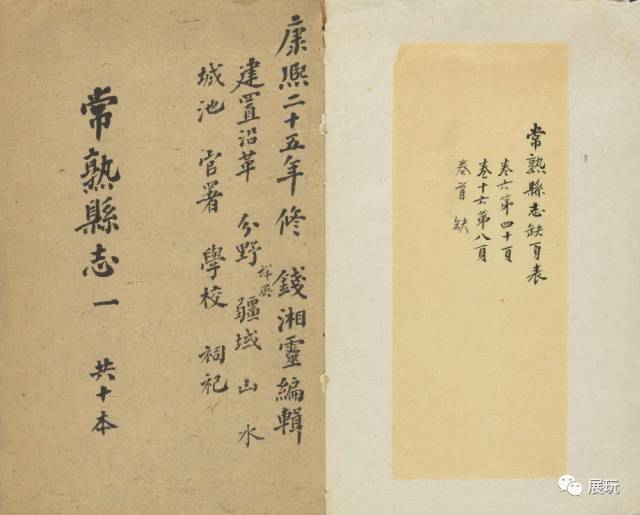 常熟縣志缺頁表
卷六第四十頁
卷十六第八頁
卷首 缺
康熙二十五年修 錢湘靈編輯
建置沿革 分野 祥異 疆域 山 水
城池 官署 學校 祠祀
常熟縣志一 共十本
展玩